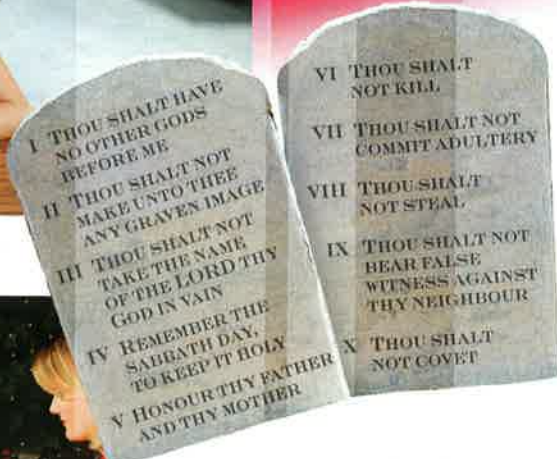 I THOU SHALT HAVE
NO OTHER GODS
BEFORE ME
II THOU SHALT NOT
MAKE UNTO THEE
ANY GRAVEN IMAGE
III THOU SHALT NOT
TAKE THE NAME
OF THE LORD THY
GOD IN VAIN
IV REMEMBER THE
SABBATH DAY,
TO KEEP IT HOLY
V HONOUR THY FATHER
AND THY MOTHER
VI THOU SHALT
NOT KILL
VII THOU SHALT NOT
COMMIT ADULTERY
VIII THOU SHALT
NOT STEAL
IX THOU SHALT NOT
BEAR FALSE
WITNESS AGAINST
THY NEIGHBOUR
X THOU SHALT
NOT COVET